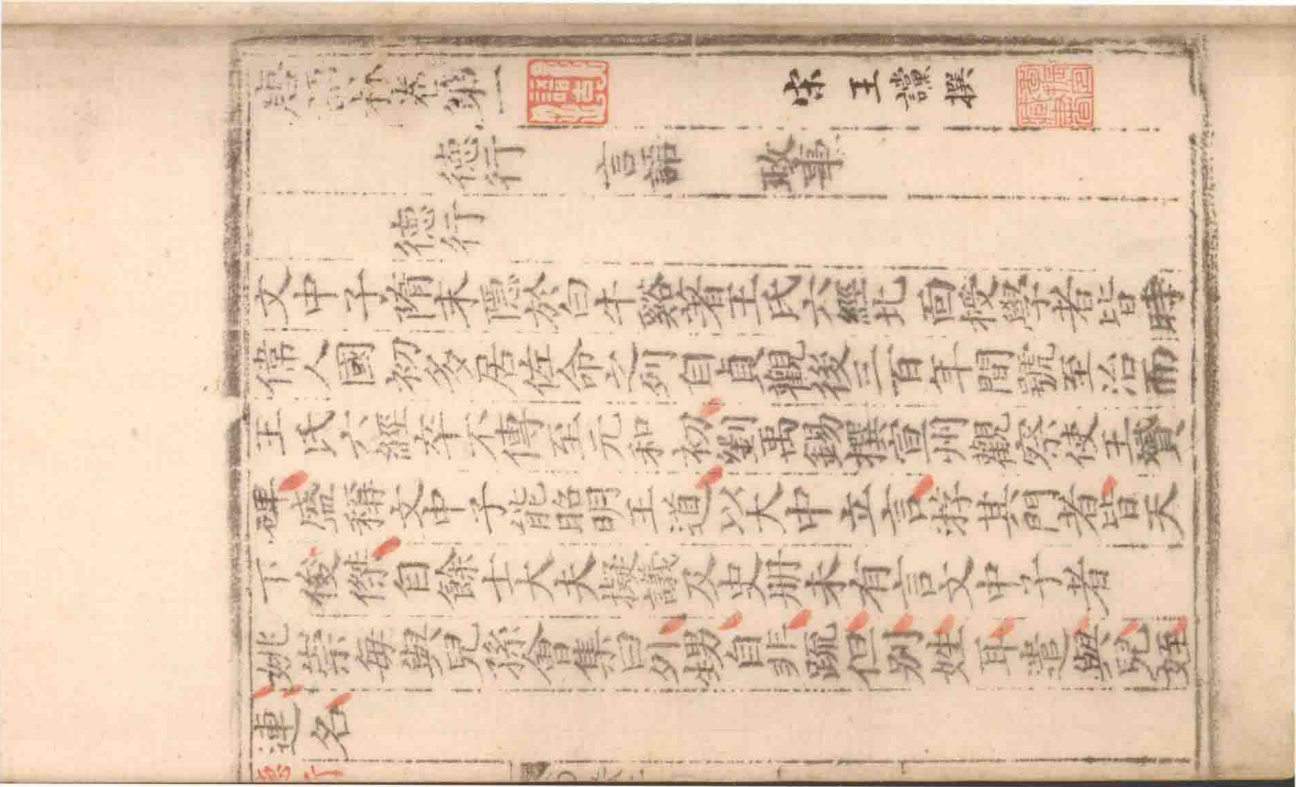 唐語林卷第一 宋 王讜撰
德行 言語 政事
德行
文中子隋末隱於白牛谿著王氏六經北面授學者皆時
偉人國初多居佐命之列自貞觀後三百年間號至治而
王氏六經卒不傳至元和初劉禹錫撰宣州觀察使王贊
碑盛稱文中子能昭明王道以大中立言游其門者皆天
下俊傑自餘士大夫擬議及史冊未有言文中子者
姚崇每與兒孫會集曰外甥自非疏但別姓耳遣與兒姪
連名